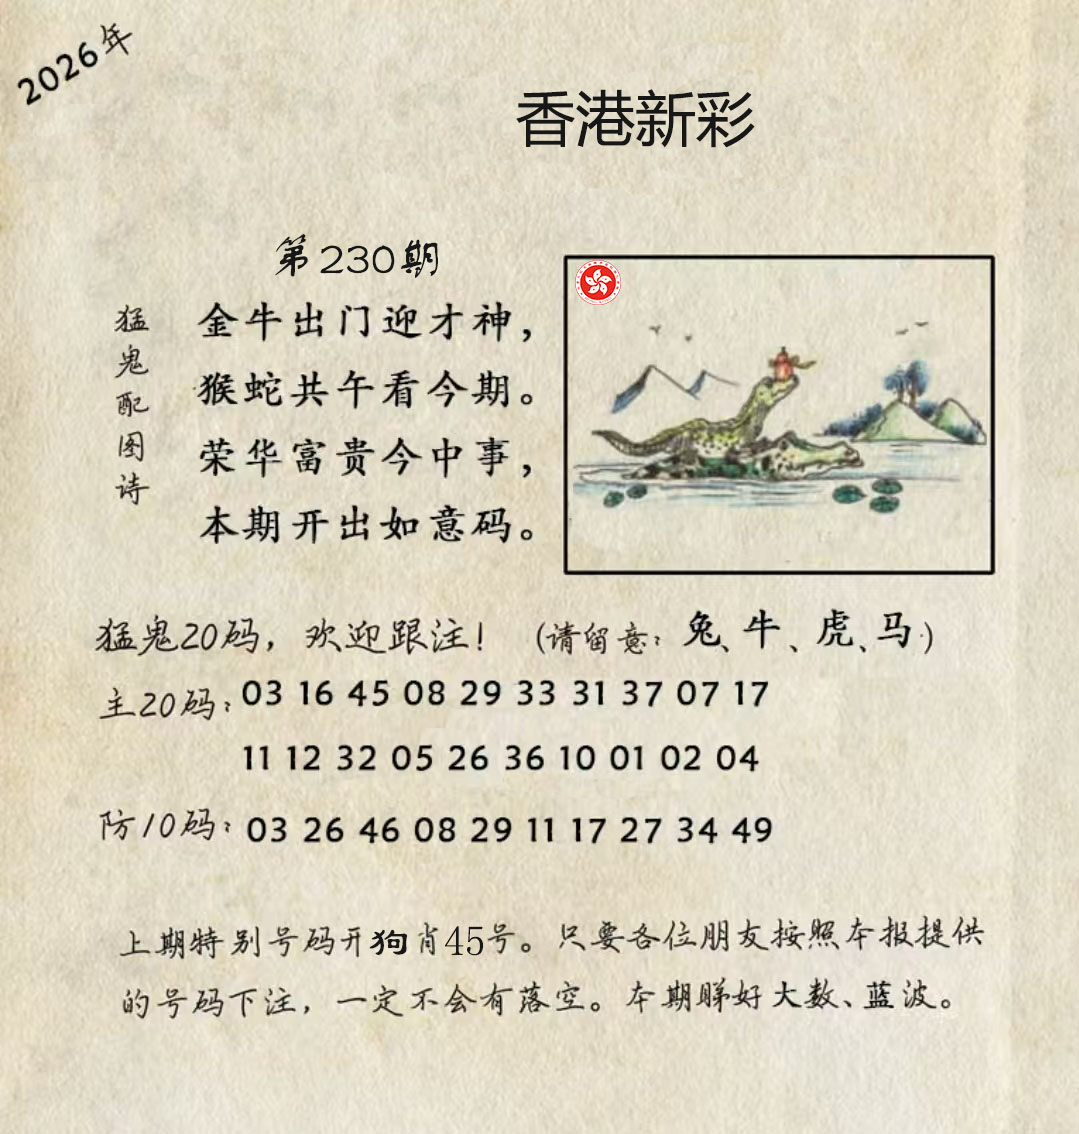 2026年
香港新彩
第230期
猛鬼配图诗
金牛出门迎才神，
猴蛇共午看今期。
荣华富贵今中事，
本期开出如意码。
猛鬼20码，欢迎跟注！（请留意：兔、牛、虎、马）
主20码：03 16 45 08 29 33 31 37 07 17
11 12 32 05 26 36 10 01 02 04
防10码：03 26 46 08 29 11 17 27 34 49
上期特别号码开狗肖45号。只要各位朋友按照本报提供
的号码下注，一定不会有落空。本期睇好大数、蓝波。